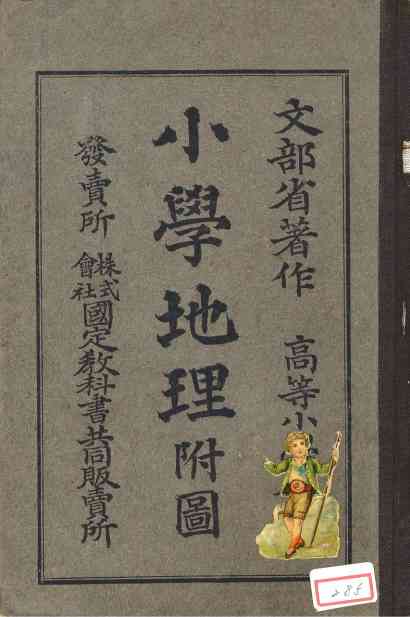 文部省著作 高等小
小學地理附圖
發賣所 株式會社國定教科書共同販賣所
285